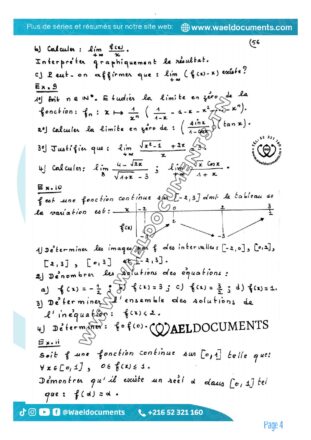 Plus de séries et résumés sur notre site web: www.waeldocuments.com
(56
b) Calculer : lim f(x)/x
+∞
Interpréter graphiquement le résultat.
c) Peut-on affirmer que : lim (f(x)-x) existe?
+∞
Ex.9
1°) Soit n ∈ ℕ*. Etudier la limite en zéro de la
fonction: fn : x ↦ 1/x^n (1/(1-x) - 1 - x - x² - ... - x^n).
2°) Calculer la limite en zéro de : (sin x/(1-cos x))(tan x).
3°) Justifier que : lim
4) Calculer: lim (4-√2x)/(√(x+2)-3) ; lim √x cos x/(1+x).
Ex.10
f est une fonction continue sur [-2,3] dont le tableau
de variation est:
x -2 0 2 3
f(x)
1) Déterminer les images par f des intervalles: [-2,0], [0,2],
[2,3], [0,3] et [-2,3].
2) Dénombrer les solutions des équations :
a) f(x) = ; b) f(x) = 3 ; c) f(x) = 3/2 ; d) f(x) = 1.
3) Déterminer l'ensemble des solutions de
l'inéquation : f(x) < 2.
4) Déterminer : f∘f(0).
WAELDOCUMENTS
Ex.11
Soit f une fonction continue sur [0,1] telle que:
∀ x ∈ [0,1], 0 ≤ f(x) ≤ 1.
Démontrer qu'il existe un réel α dans [0,1] tel
que : f(α) = α.
@Waeldocuments +216 52 321 160
Page 4